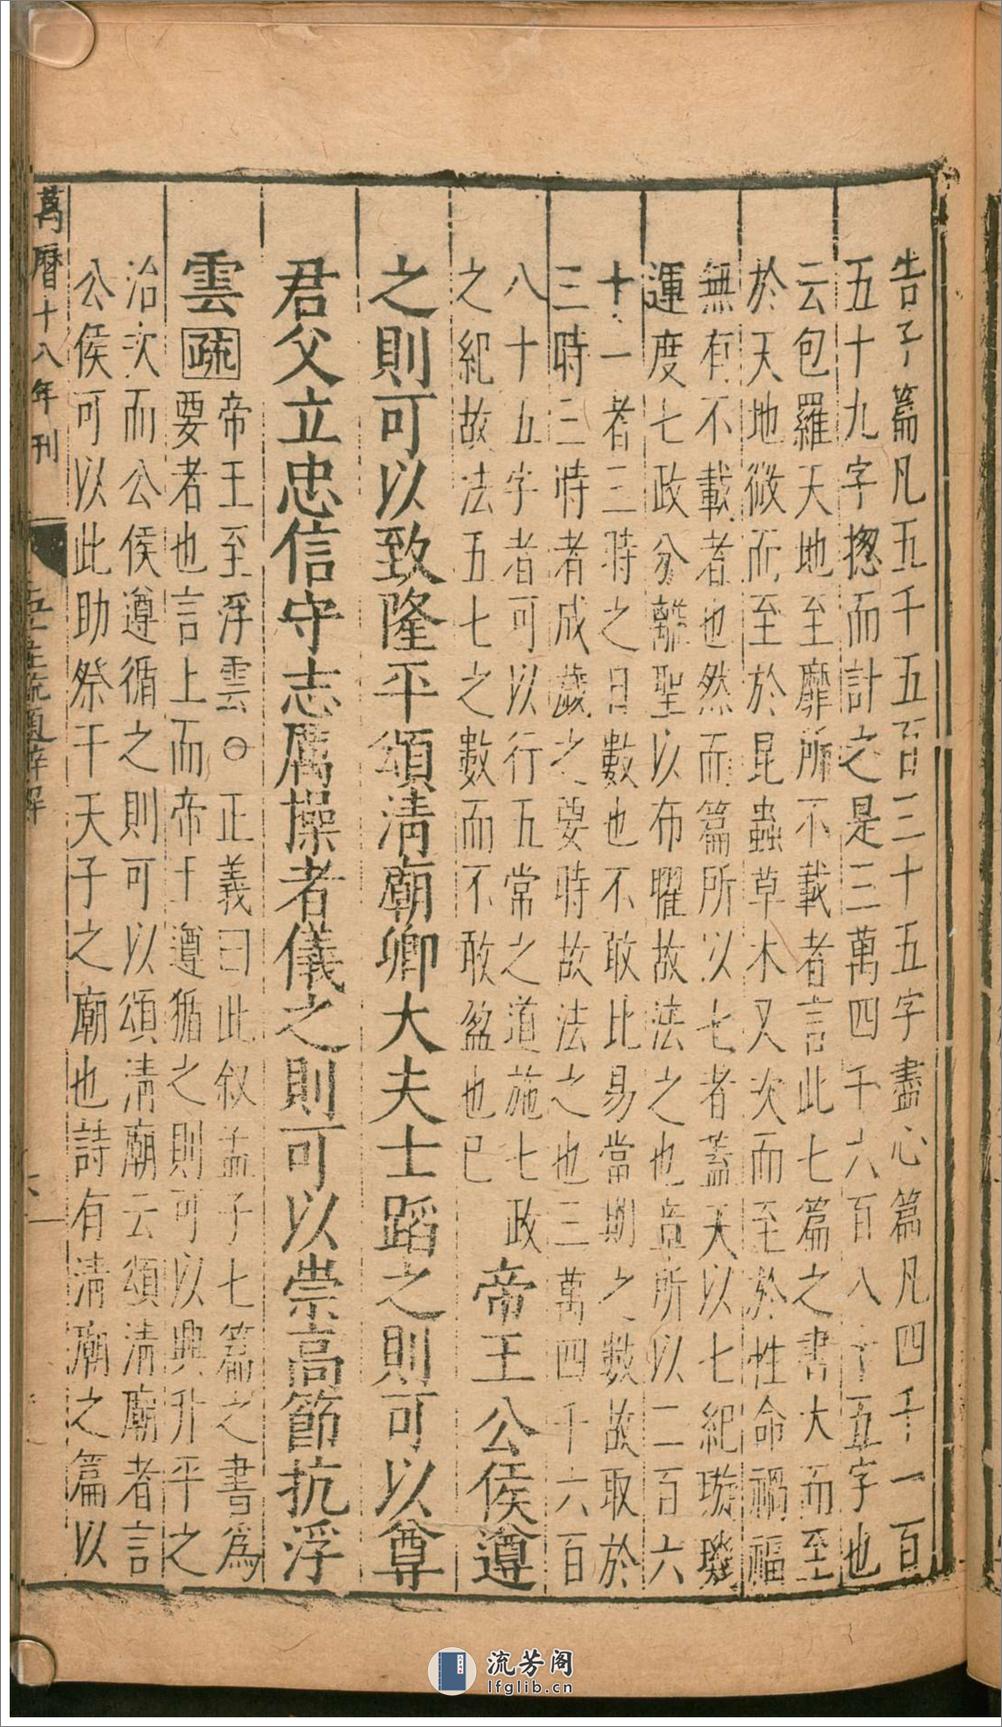 告子篇凡五千五百三十五字盡心篇凡四千一百
五十九字揔而計之是三萬四千六百八十五字也
云包羅天地至靡所不載者言此七篇之書大而至
於天地微而至於昆蟲草木又次而至於性命禍福
無有不載者也然而篇所以七者蓋天以七紀璇璣
運度七政分離聖以布曜故法之也章所以二百六
十一者三時之日數也不敢比易當期之數故取於
三時三時者成歲之要時故法之也三萬四千六百
八十五字者可以行五常之道施七政
之紀故法五七之數而不敢盈也已
帝王公侯遵
之則可以致隆平頌清廟卿大夫士蹈之則可以尊
君父立忠信守志厲操者儀之則可以崇高節抗浮
雲
疏
帝王至浮雲○正義曰此叙孟子七篇之書為
要者也言上而帝王遵循之則可以興升平之
治次而公侯遵循之則可以頌清廟云頌清廟者言
公侯可以此助祭于天子之廟也詩有清廟之篇以
萬曆十八年刊
流芳阁
lfglib.cn